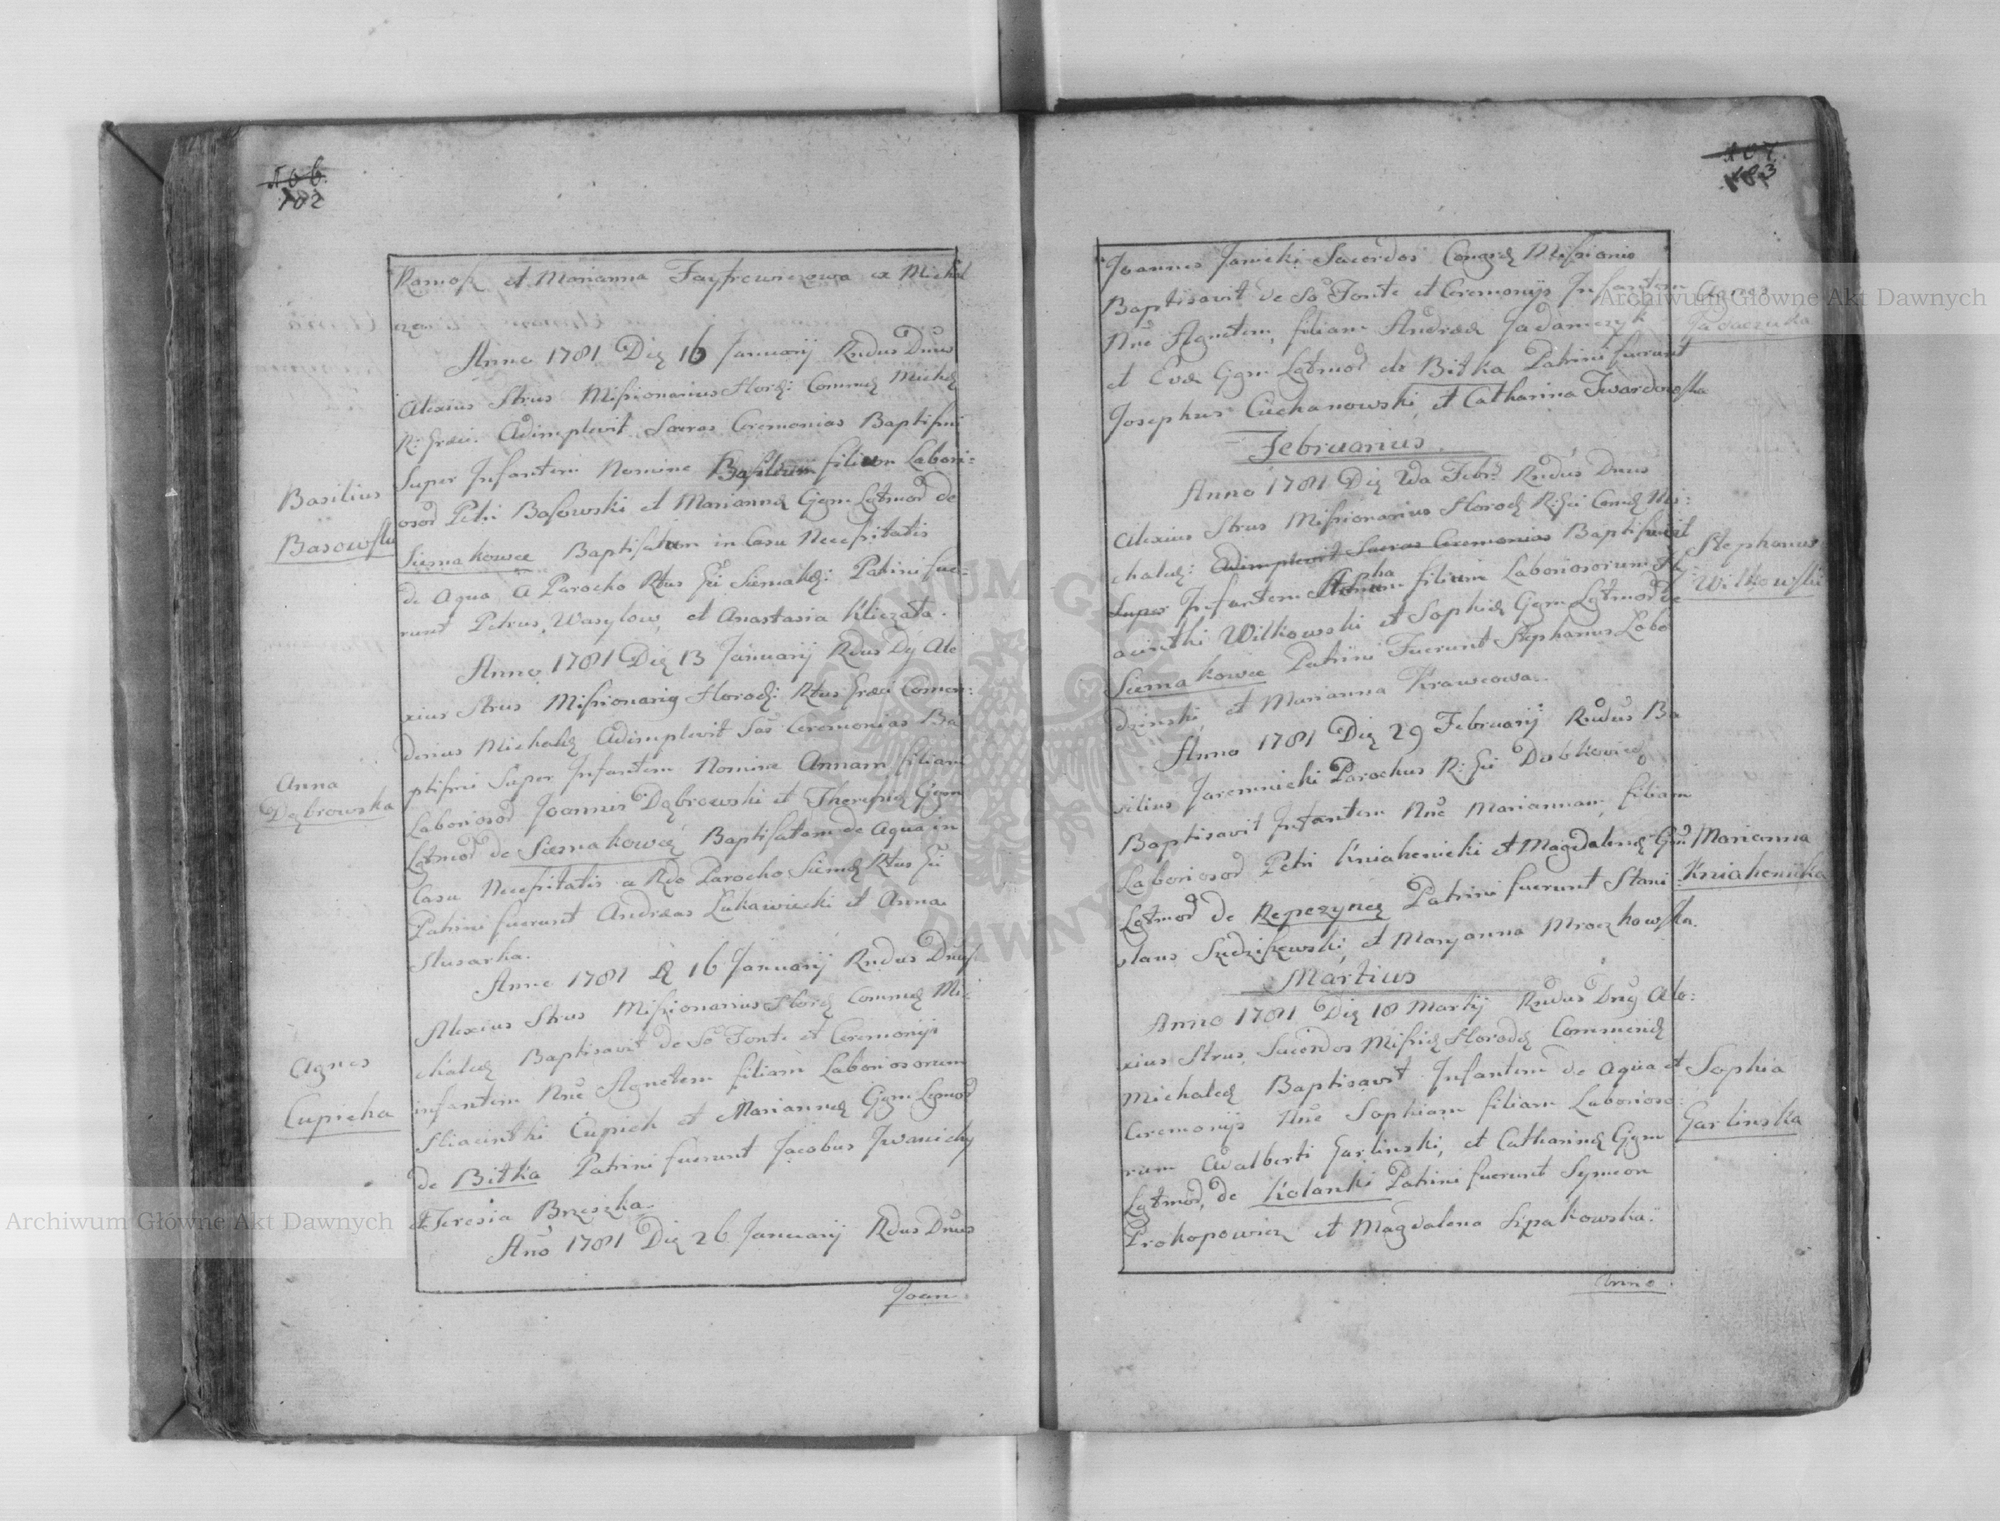 106.
182
Ramosz et Marianna Fayfrewiczowa ex Michal
czow
Anno 1781 Die 16 Januarij Rndus Dnus
Alexius Strus Missionarius Horod: Commen Michal
R: Graeci. Adimplevit Sacras Ceremonias Baptismi
Super Infantem Nomine Basilium filium Labori=
osor Petri Basowski et Mariannae Cjgm Lgtmor de
Siemakowce Baptisatum in Casu Necessitatis
de Aqua, a Parocho Rtus Gci Siemak: Patrini fue=
runt Petrus Wasylow, et Anastasia Kliczata.
Basilius
Basowski
Anno 1781 Die 13 Januarij Rdus D. Ale
xius Strus Missionarig Horod: Rtus Graeci Commen:
darius Michal Adimplevit Sas Ceremonias Ba
ptismi Super Infantem Nomine Annam filiam
Laboriosor Joannis Dąbrowski et Theresiae Cjgm
Lgtmor de Siemakowce Baptisatam de Aqua in
Casu Necessitatis a Rdo Parocho Siemak Rtus Gci
Patrini fuerunt Andreas Lukawiecki et Anna
Slusarka.
Anna
Dąbrowska
Anno 1781 D 16 Januarij Rndus Dnus
Alexius Strus Missionarius Horod Commen Mi=
chalcz Baptisavit de So Fonte et Ceremonijs
infantem Nne Agnetem filiam Laboriosorum
Hiacinthi Cupich et Mariannae Cjgm Lgmor
de Bitka Patrini fuerunt Jacobus Iwanicky
et Teresia Brzeszka.
Agnes
Cupicha
Ano 1781 Die 26 Januarij Rdus Dnus
Joan
107.
183
Joannes Janicki Sacerdos Congreg Missionis
Baptisavit de So Fonte et Ceremonijs Infantem
Nne Agnetem, filiam Andreae Jadamczyk
et Evae Cjgm Lgtmor de Bitka Patrini fuerunt
Josephus Ciechanowski, et Catharina Twardowska
Agnes
Februarius
Anno 1781 Die 2da Febr Rndus Dnus
Alexius Strus Missionarius Horod R: Gci Comen Mi:
chalcz: Adimplevit Sacras Ceremonias Baptisavit
Super Infantem filium Laboriosorum Hy
acinthi Witkowski et Sophiae Cjgm Lgtmor de
Siemakowce Patrini Fuerunt Stephanus Lobo
dzinski, et Marianna Krawcowa.
Stephanus
Witkowski
Anno 1781 Die 29 Februarij Rndus Ba
silius Jaremnicki Parochus R: Gci Dubkowiec
Baptisavit Infantem Nne Mariannam, filiam
Laboriosor Petri Kniahenicki et Magdalenae Cjm
Lgtmor de Repczynce Patrini fuerunt Stani
slaus Sędziszewski, et Maryanna Mroczkowska.
Marianna
Kniahenicka
Martius
Anno 1781 Die 18 Martij Rndus Dng Ale:
xius Strus Sacerdos Missi Horod Commend
Michalcz Baptisavit Infantem de Aqua et
Ceremonijs Nne Sophiam filiam Laborioso:
rum Adalberti Garlinski, et Catharinae Cjgm
Lgtmor, de Kolanki Patrini fuerunt Symeon
Prokopowicz et Magdalena Szpakowska.
Sophia
Garlinska
Anno
Archiwum Główne Akt Dawnych
Archiwum Główne Akt Dawnych